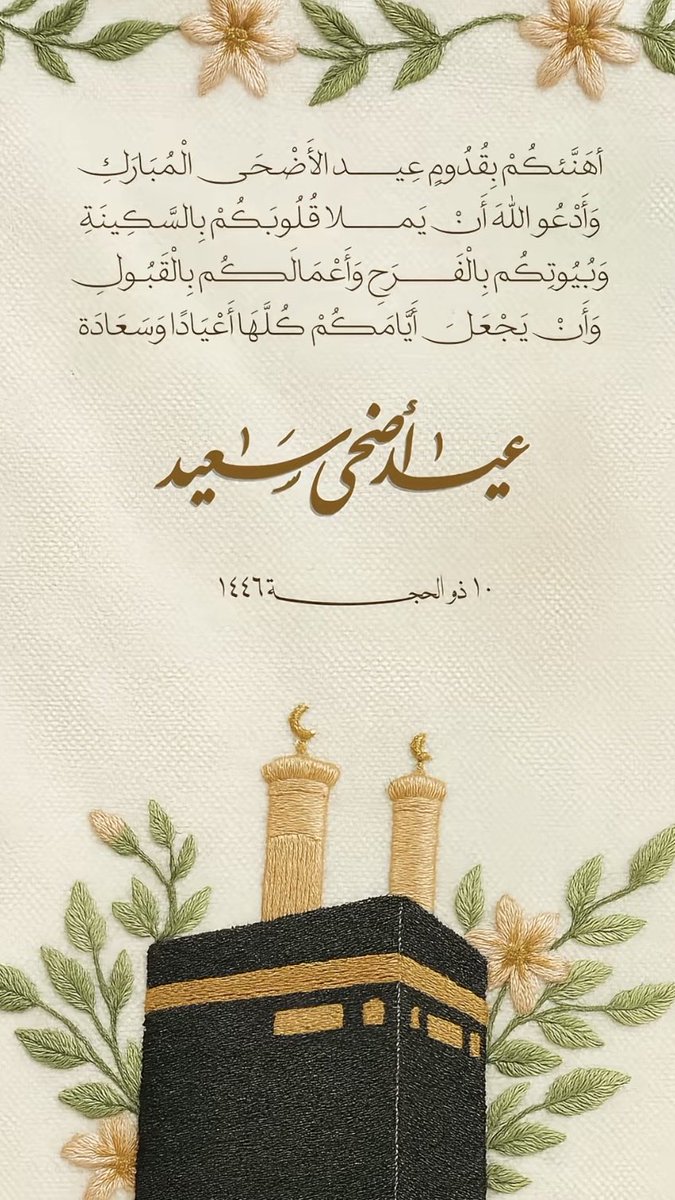 أُهَنَّئكُمْ بِقُدُومٍ عِيد الأَضْحَى الْمُبَارَكِ
وَأَدْعُو اللهَ أَنْ يَملا قُلُوبَكُمْ بِالسَّكِينَةِ
وَبُيُوتِكُم بِالْفَرَحِ وَأَعْمَالَكُم بِالْقَبُولِ
وَأَنْ يَجْعَلَ أَيَّامَكُمْ كُلَّهَا أَعْيَادًا وَسَعَادَة
عيد أضحى سَعيد
١٠ ذو الحجة ١٤٤٦